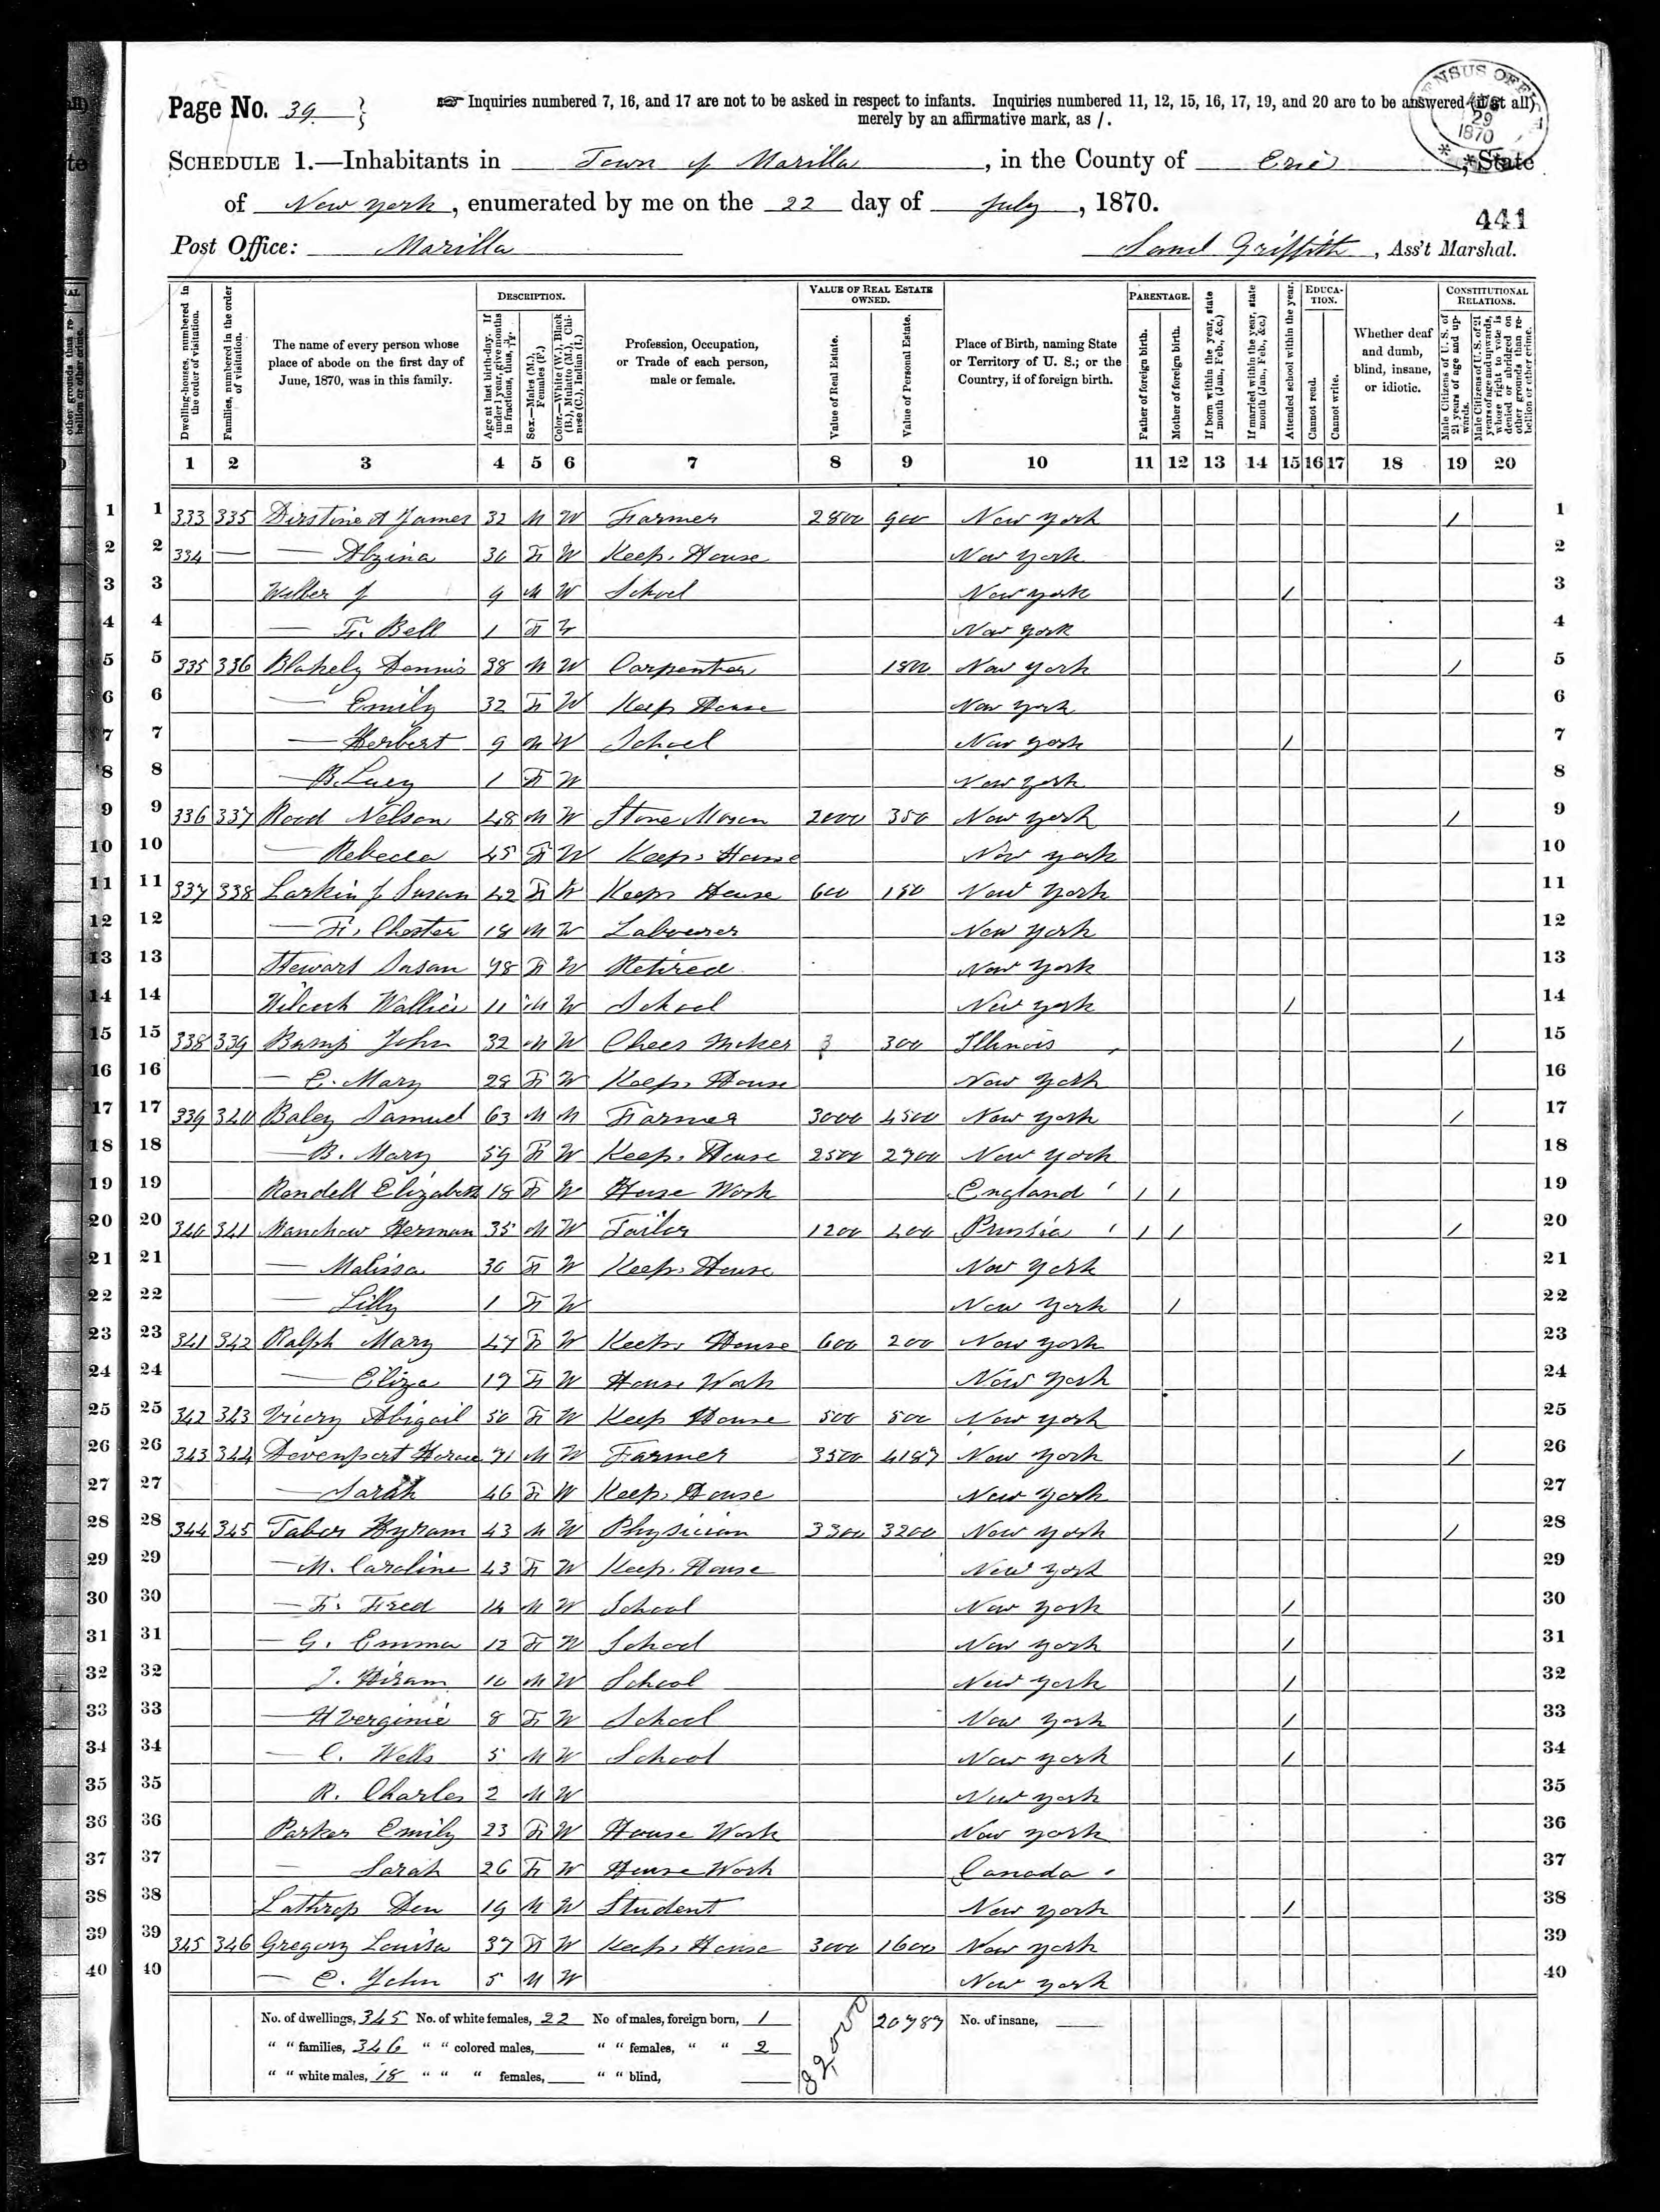 Page No. 39
Inquiries numbered 7, 16, and 17 are not to be asked in respect to infants. Inquiries numbered 11, 12, 15, 16, 17, 19, and 20 are to be answered (if at all)
merely by an affirmative mark, as /.
CENSUS OFFICE
29
1870
SCHEDULE 1.—Inhabitants in Town of Marilla, in the County of Erie, State
of New York, enumerated by me on the 22 day of July, 1870.
441
Post Office: Marilla
Saml Griffith, Ass't Marshal.
Dwelling-houses, numbered in the order of visitation.
Families, numbered in the order of visitation.
The name of every person whose place of abode on the first day of June, 1870, was in this family.
DESCRIPTION.
Age at last birth-day. If under 1 year, give months in fractions, thus, 3/12.
Sex.—Males (M.), Females (F.)
Color.—White (W.), Black (B.), Mulatto (M.), Chinese (C.), Indian (I.)
Profession, Occupation, or Trade of each person, male or female.
VALUE OF REAL ESTATE OWNED.
Value of Real Estate.
Value of Personal Estate.
Place of Birth, naming State or Territory of U. S.; or the Country, if of foreign birth.
PARENTAGE.
Father of foreign birth.
Mother of foreign birth.
If born within the year, state month (Jan., Feb., &c.)
If married within the year, state month (Jan., Feb., &c.)
Attended school within the year.
EDUCATION.
Cannot read.
Cannot write.
Whether deaf and dumb, blind, insane, or idiotic.
CONSTITUTIONAL RELATIONS.
Male Citizens of U. S. of 21 years of age and upwards.
Male Citizens of U. S. of 21 years of age and upwards, whose right to vote is denied or abridged on other grounds than rebellion or other crime.
1 2 3 4 5 6 7 8 9 10 11 12 13 14 15 16 17 18 19 20
1 333 335 Dirstine A James 32 M W Farmer 2800 900 New York / 1
2 334 — — Alzina 30 F W Keep. House New York 2
3 Wilber J 9 M W School New York / 3
4 — F. Bell 1 F W New York 4
5 335 336 Blakely Dennis 38 M W Carpenter 1800 New York / 5
6 — Emily 32 F W Keep House New York 6
7 — Herbert 9 M W School New York / 7
8 — B. Lucy 1 F W New York 8
9 336 337 Rood Nelson 48 M W Stone Mason 2000 350 New York / 9
10 — Rebecca 45 F W Keep. House New York 10
11 337 338 Larkin J Susan 42 F W Keep House 600 150 New York 11
12 — F. Chester 18 M W Labourer New York 12
13 Stewart Susan 78 F W Retired New York 13
14 Wallice 11 M W School New York / 14
15 338 339 Bump John 32 M W Chees Maker 300 Illinois / 15
16 — E. Mary 28 F W Keep. House New York 16
17 339 340 Baley Samuel 63 M M Farmer 3000 4500 New York / 17
18 — B. Mary 59 F W Keep. House 2500 2700 New York 18
19 Rendell Elizabeth 18 F W House Work England / / 19
20 340 341 Manchow Herman 35 M W Tailor 1200 200 Prussia / / / 20
21 — Malissa 30 F W Keep. House New York 21
22 — Lilly 1 F W New York / 22
23 341 342 Ralph Mary 47 F W Keep. House 600 200 New York 23
24 — Eliza 19 F W House Work New York 24
25 342 343 Abigail 50 F W Keep House 500 500 New York 25
26 343 344 Davenport Horace 71 M W Farmer 3500 4187 New York / 26
27 — Sarah 46 F W Keep. House New York 27
28 344 345 Taber Hyram 43 M W Physician 3300 3200 New York / 28
29 — M. Caroline 43 F W Keep. House New York 29
30 — F. Fred 14 M W School New York / 30
31 — G. Emma 12 F W School New York / 31
32 J. Hiram 10 M W School New York / 32
33 — H Verginie 8 F W School New York / 33
34 — C. Wells 5 M W School New York / 34
35 R. Charles 2 M W New York 35
36 Parker Emily 23 F W House Work New York 36
37 — Sarah 26 F W House Work Canada 37
38 Lathrop Den 19 M W Student New York / 38
39 345 346 Gregory Louisa 37 F W Keep. House 3000 1600 New York 39
40 — C. John 5 M W New York 40
No. of dwellings, 345 No. of white females, 22 No of males, foreign born, 1 20787 No. of insane,
" " families, 346 " " colored males, " " females, " " 2
" " white males, 18 " " " females, " " blind,